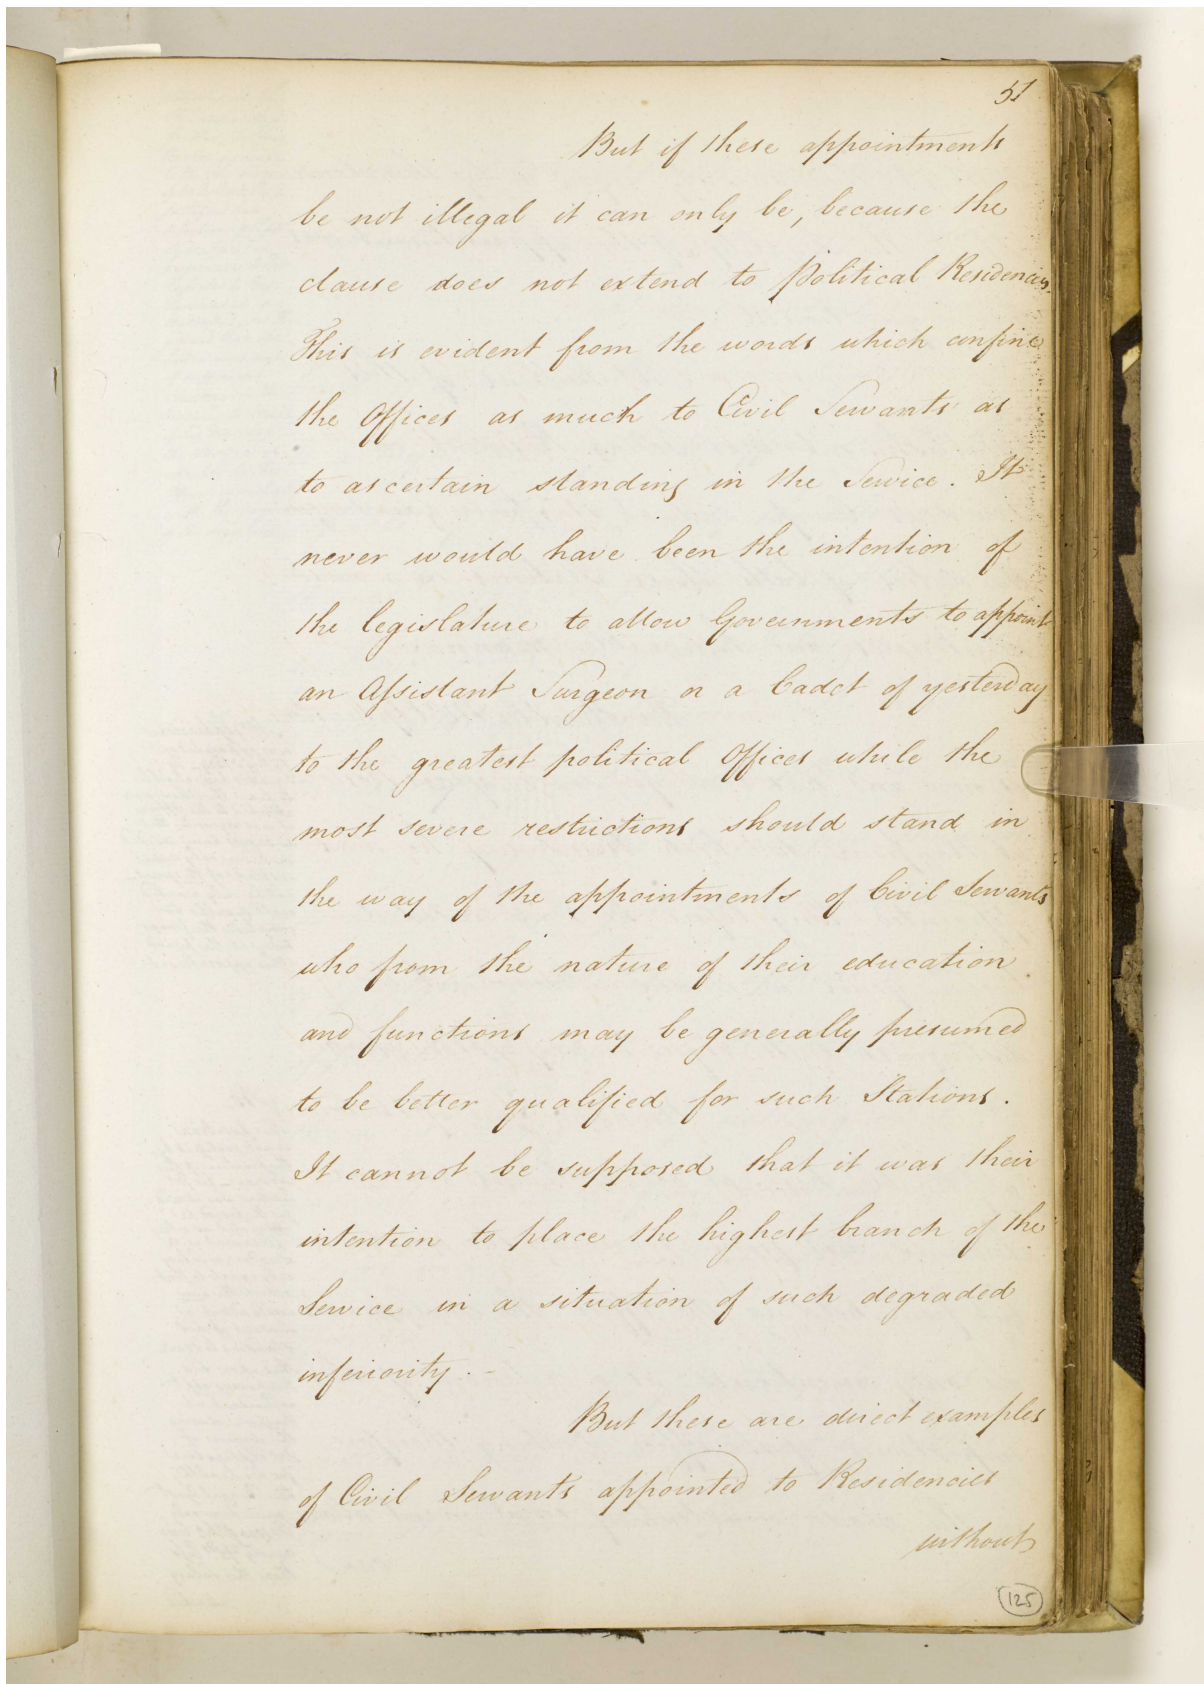 51
But if these appointments
be not illegal it can only be, because the
clause does not extend to Political Residencies.
This is evident from the words which confine
the Offices as much to Civil Servants as
to a certain standing in the Service. It
never would have been the intention of
the legislature to allow Governments to appoint
an Assistant Surgeon or a Cadet of yesterday
to the greatest political Offices while the
most severe restrictions should stand in
the way of the appointments of Civil Servants
who from the nature of their education
and functions may be generally presumed
to be better qualified for such Stations.
It cannot be supposed that it was their
intention to place the highest branch of the
Service in a situation of such degraded
inferiority. -
But these are direct examples
of Civil Servants appointed to Residencies
without
125